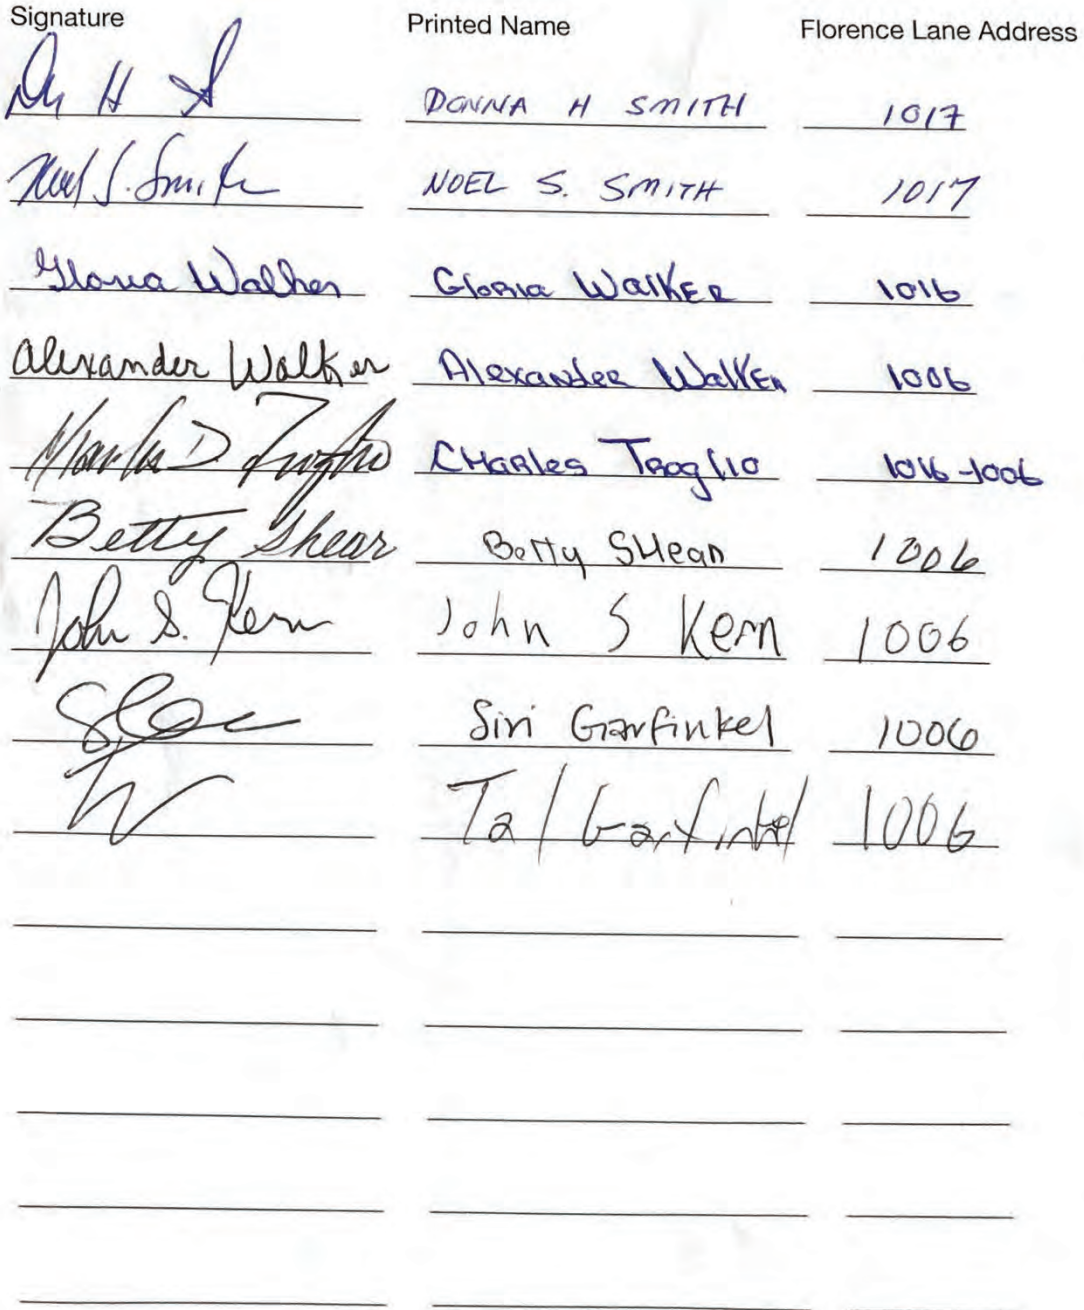 Signature Printed Name Florence Lane Address
DONNA H SMITH 1017
Noel S. Smith NOEL S. SMITH 1017
Gloria Walker Gloria WalKER 1016
Alexander Walker Alexander Walker 1006
Charles D. CHarles Troglio 1016-1006
Betty Shear Betty SHear 1006
John S. Kern John S Kern 1006
Siri Garfinkel 1006
Tal Garfinkel 1006